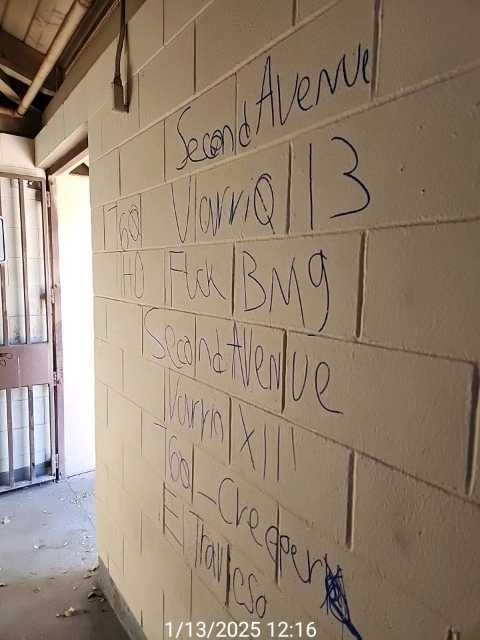 Second Avenue
VarriO 13
Fuck BMg
Second Avenue
Varrio XIII
Creeper
El Travieso
1/13/2025 12:16